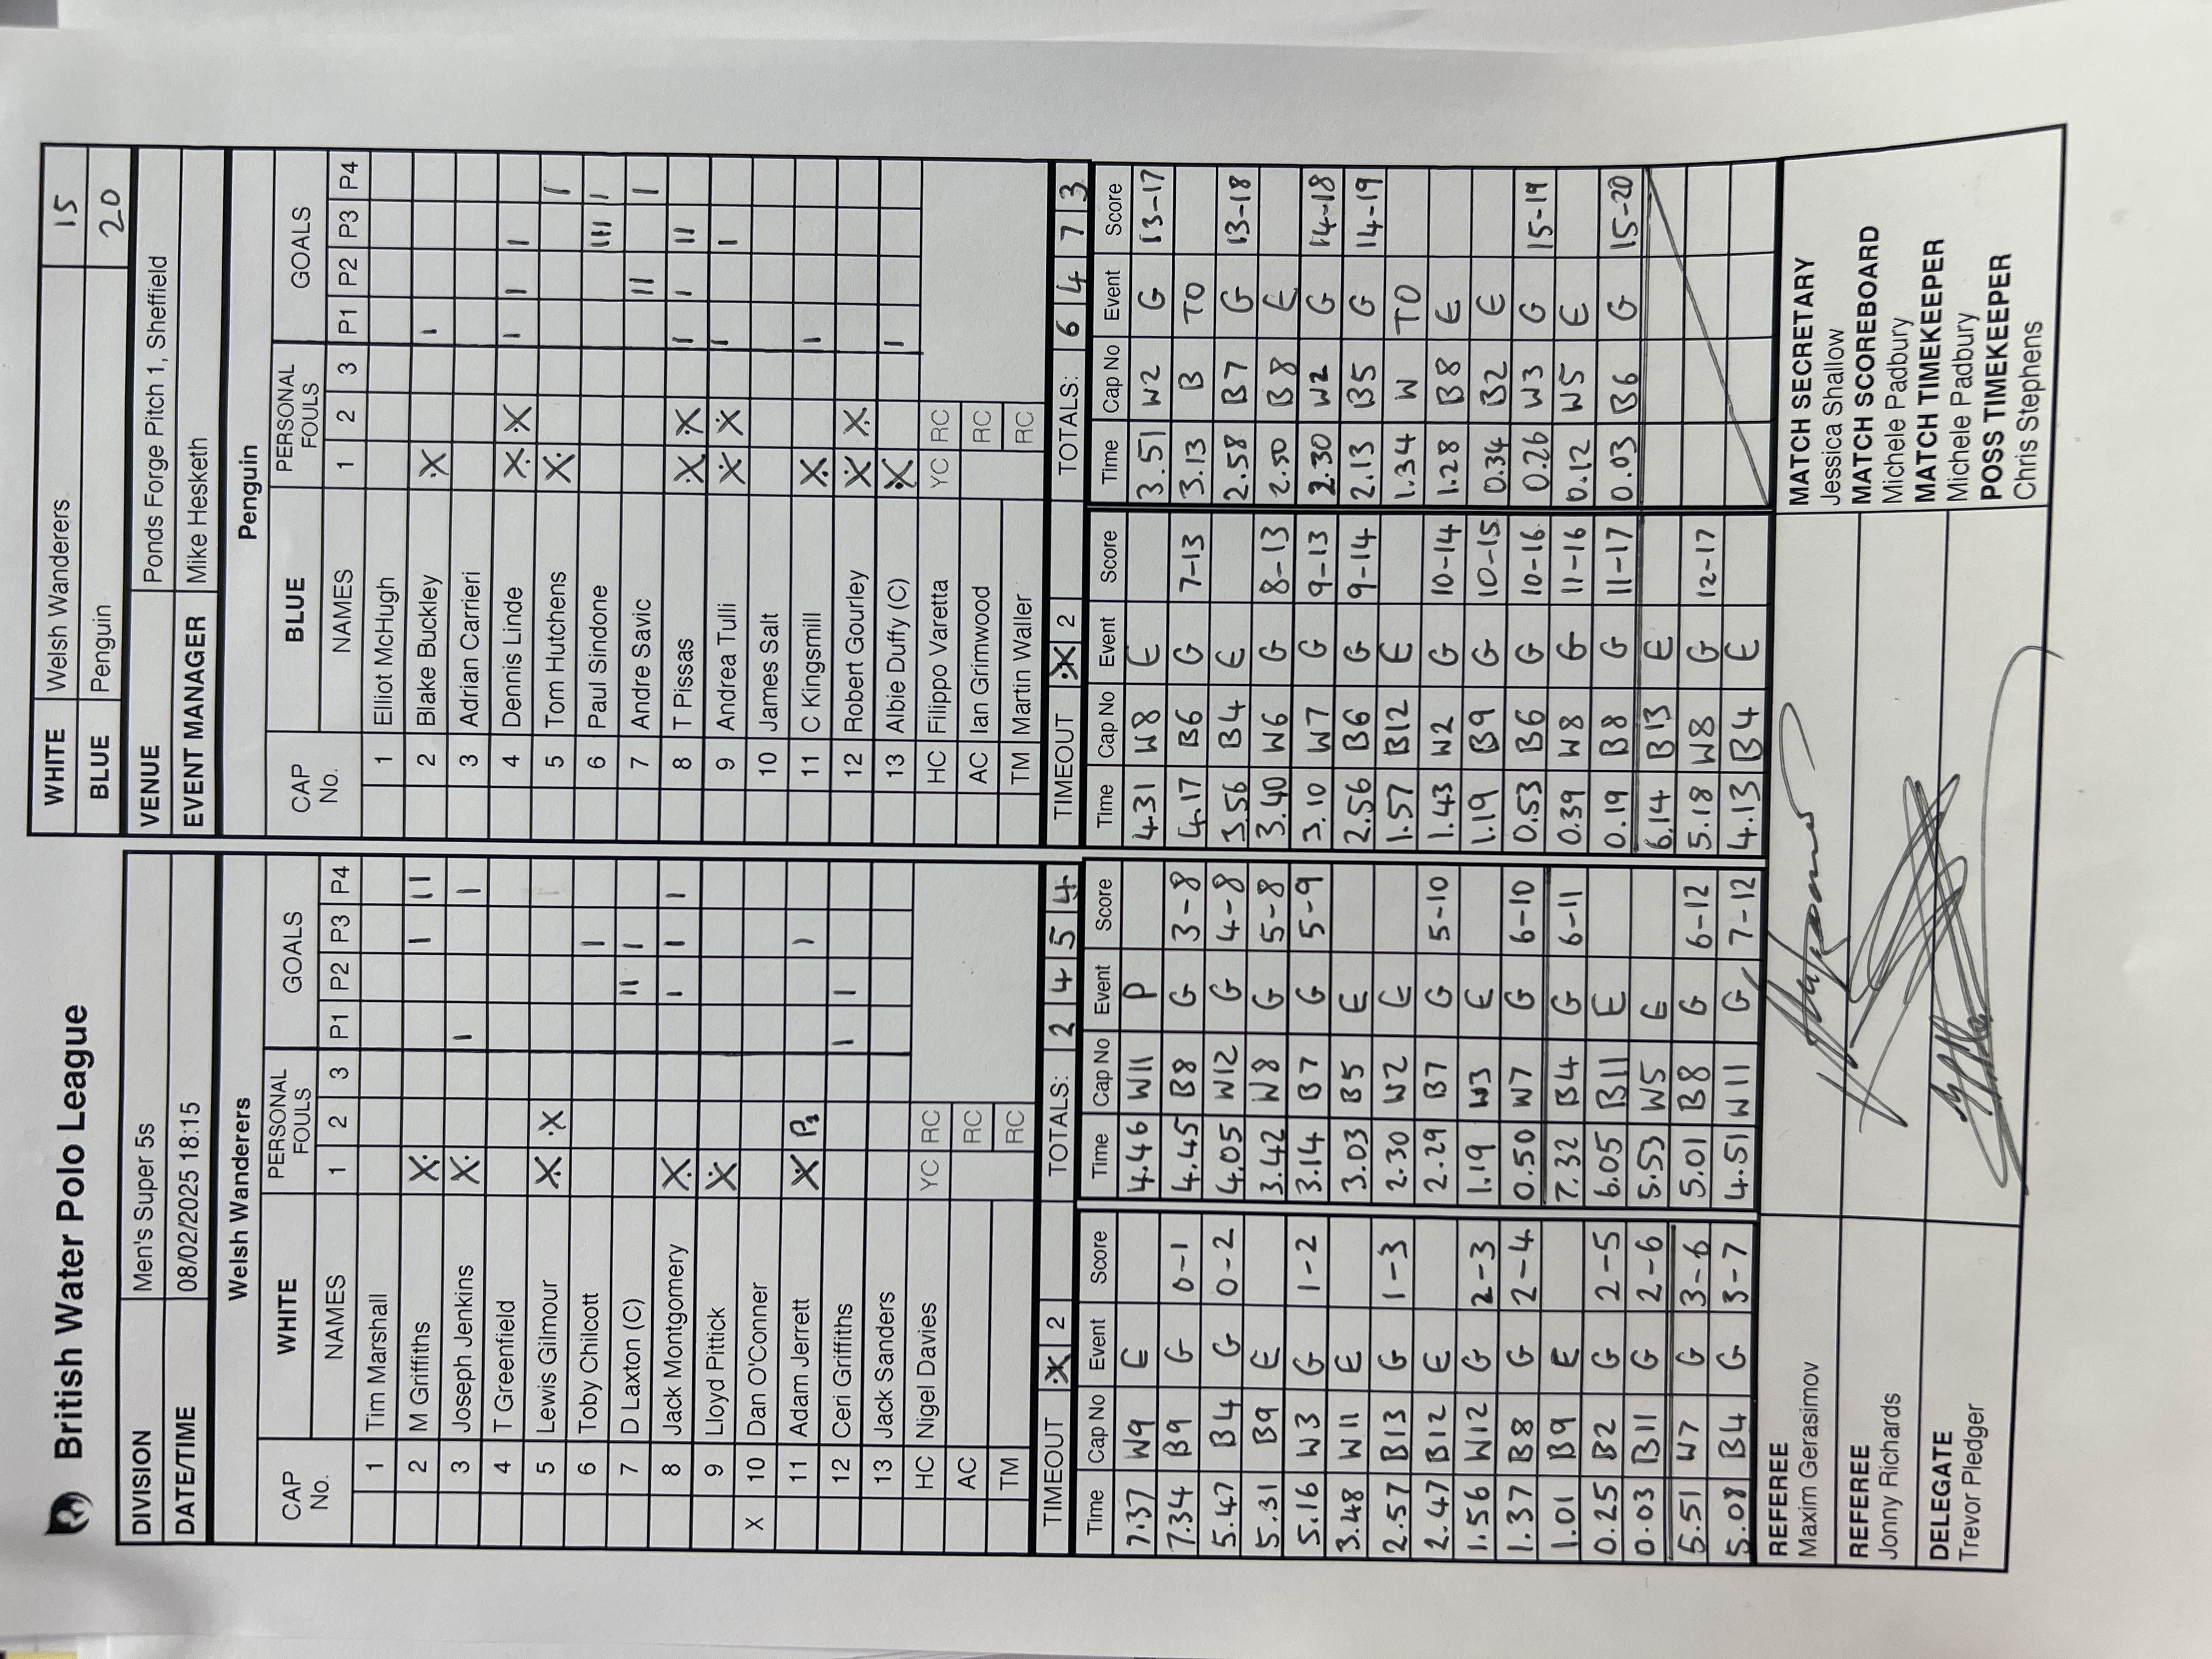 British Water Polo League
WHITE Welsh Wanderers 15
BLUE Penguin 20
DIVISION Men's Super 5s
DATE/TIME 08/02/2025 18:15
VENUE Ponds Forge Pitch 1, Sheffield
EVENT MANAGER Mike Hesketh
Welsh Wanderers
CAP No. WHITE NAMES PERSONAL FOULS 1 2 3 GOALS P1 P2 P3 P4
1 Tim Marshall
2 M Griffiths X I II
3 Joseph Jenkins X I I
4 T Greenfield
5 Lewis Gilmour X X
6 Toby Chilcott I
7 D Laxton (C) II I
8 Jack Montgomery X I I I
9 Lloyd Pittick X
X 10 Dan O'Conner
11 Adam Jerrett X P I
12 Ceri Griffiths I I
13 Jack Sanders
HC Nigel Davies YC RC
AC RC
TM RC
TIMEOUT X 2 TOTALS: 2 4 5 4
Penguin
CAP No. BLUE NAMES PERSONAL FOULS 1 2 3 GOALS P1 P2 P3 P4
1 Elliot McHugh
2 Blake Buckley X I
3 Adrian Carrieri
4 Dennis Linde X X I I I
5 Tom Hutchens X I
6 Paul Sindone III I
7 Andre Savic II I
8 T Pissas X X II I II
9 Andrea Tulli X X I I
10 James Salt
11 C Kingsmill X I
12 Robert Gourley X X
13 Albie Duffy (C) X I
HC Filippo Varetta YC RC
AC Ian Grimwood RC
TM Martin Waller RC
TIMEOUT X 2 TOTALS: 6 4 7 3
Time Cap No Event Score
7.37 W9 E
7.34 B9 G 0-1
5.47 B4 G 0-2
5.31 B9 E
5.16 W3 G 1-2
3.48 W11 E
2.57 B13 G 1-3
2.47 B12 E
1.56 W12 G 2-3
1.37 B8 G 2-4
1.01 B9 E
0.25 B2 G 2-5
0.03 B11 G 2-6
5.51 W7 G 3-6
5.08 B4 G 3-7
Time Cap No Event Score
4.46 W11 P
4.45 B8 G 3-8
4.05 W12 G 4-8
3.42 W8 G 5-8
3.14 B7 G 5-9
3.03 B5 E
2.30 W2 E
2.29 B7 G 5-10
1.19 W3 E
0.50 W7 G 6-10
7.32 B4 G 6-11
6.05 B11 E
5.53 W5 E
5.01 B8 G 6-12
4.51 W11 G 7-12
Time Cap No Event Score
4.31 W8 E
4.17 B6 G 7-13
3.56 B4 E
3.40 W6 G 8-13
3.10 W7 G 9-13
2.56 B6 G 9-14
1.57 B12 E
1.43 W2 G 10-14
1.19 B9 G 10-15
0.53 B6 G 10-16
0.39 W8 G 11-16
0.19 B8 G 11-17
6.14 B13 E
5.18 W8 G 12-17
4.13 B4 E
Time Cap No Event Score
3.51 W2 G 13-17
3.13 B TO
2.58 B7 G 13-18
2.50 B8 E
2.30 W2 G 14-18
2.13 B5 G 14-19
1.34 W TO
1.28 B8 E
0.34 B2 E
0.26 W3 G 15-19
0.12 W5 E
0.03 B6 G 15-20
REFEREE
Maxim Gerasimov
REFEREE
Jonny Richards
DELEGATE
Trevor Pledger
MATCH SECRETARY
Jessica Shallow
MATCH SCOREBOARD
Michele Padbury
MATCH TIMEKEEPER
Michele Padbury
POSS TIMEKEEPER
Chris Stephens